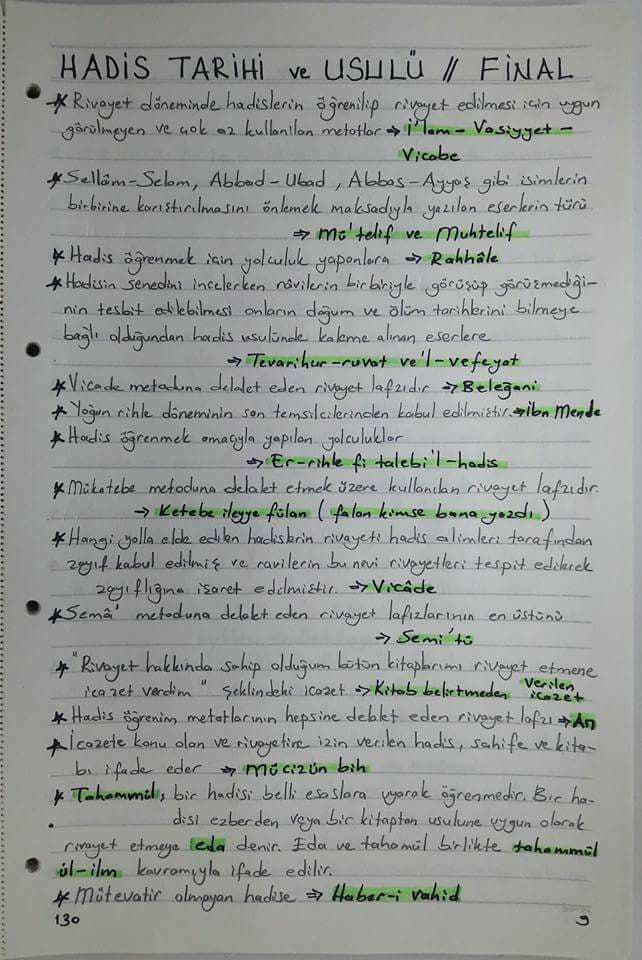 HADİS TARİHİ ve USULÜ // FİNAL
* Rivayet döneminde hadislerin öğrenilip rivayet edilmesi için uygun
görülmeyen ve çok az kullanılan metotlar ⇒ İ'lam - Vasiyyet -
Vicabe
* Sellâm-Selam, Abbad-Ubad, Abbas-Ayyaş gibi isimlerin
birbirine karıştırılmasını önlemek maksadıyla yazılan eserlerin türü
⇒ Mü'telif ve Muhtelif
* Hadis öğrenmek için yolculuk yapanlara ⇒ Rahhâle
* Hadisin senedini incelerken râvilerin birbiriyle görüşüp görüşmediği-
nin tesbit edilebilmesi onların doğum ve ölüm tarihlerini bilmeye
bağlı olduğundan hadis usulünde kaleme alınan eserlere
⇒ Tevarihur-ruvat ve'l-vefeyat
* Vicade metoduna delalet eden rivayet lafzıdır ⇒ Beleğani
* Yoğun rihle döneminin son temsilcilerinden kabul edilmiştir. ⇒ İbn Mende
* Hadis öğrenmek amacıyla yapılan yolculuklar
⇒ Er-rihle fi talebi'l-hadis
* Mükatebe metoduna delalet etmek üzere kullanılan rivayet lafzıdır.
→ Ketebe ileyye fülan ( falan kimse bana yazdı )
* Hangi yolla elde edilen hadislerin rivayeti hadis alimleri tarafından
zayıf kabul edilmiş ve ravilerin bu nevi rivayetleri tespit edilerek
zayıflığına işaret edilmiştir. ⇒ Vicâde
* Semâ' metoduna delalet eden rivayet lafızlarının en üstünü
⇒ Semi'tü
* "Rivayet hakkında sahip olduğum bütün kitaplarımı rivayet etmene
icazet verdim" şeklindeki icazet ⇒ Kitab belirtmeden verilen icazet
* Hadis öğrenim metatlarının hepsine delalet eden rivayet lafzı ⇒ An
* İcazete konu olan ve rivayetine izin verilen hadis, sahife ve kita-
bı ifade eder ⇒ Mücizün bih
* Tahammül, bir hadisi belli esaslara uyarak öğrenmedir. Bir ha-
disi ezberden veya bir kitaptan usulune uygun olarak
rivayet etmeye eda denir. Eda ve tahamül birlikte tahammül
ül-ilm kavramıyla ifade edilir.
* Mütevatir olmayan hadise ⇒ Haber-i vahid
130 9